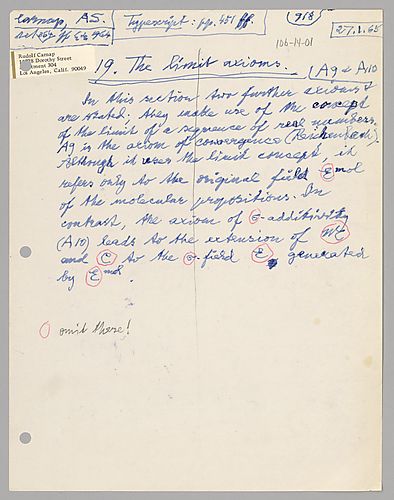 Carnap, AS.
Typescript: pp. 451 ff.
(918)
27.1.65
106-14-01
Rudolf Carnap
Dorothy Street
Apartment 304
Los Angeles, Calif. 90049
19. The limit axioms. (A9 & A10
In this section two further axioms
are stated; they make use of the concept
of the limit of a sequence of real numbers.
A9 is the axiom of convergence (Reichenbach).
Although it uses the limit concept, it
refers only to the original field E mol
of the molecular propositions. In
contrast, the axiom of σ-additivity
(A10) leads to the extension of
and C to the σ-field E generated
by E mol.
omit these!